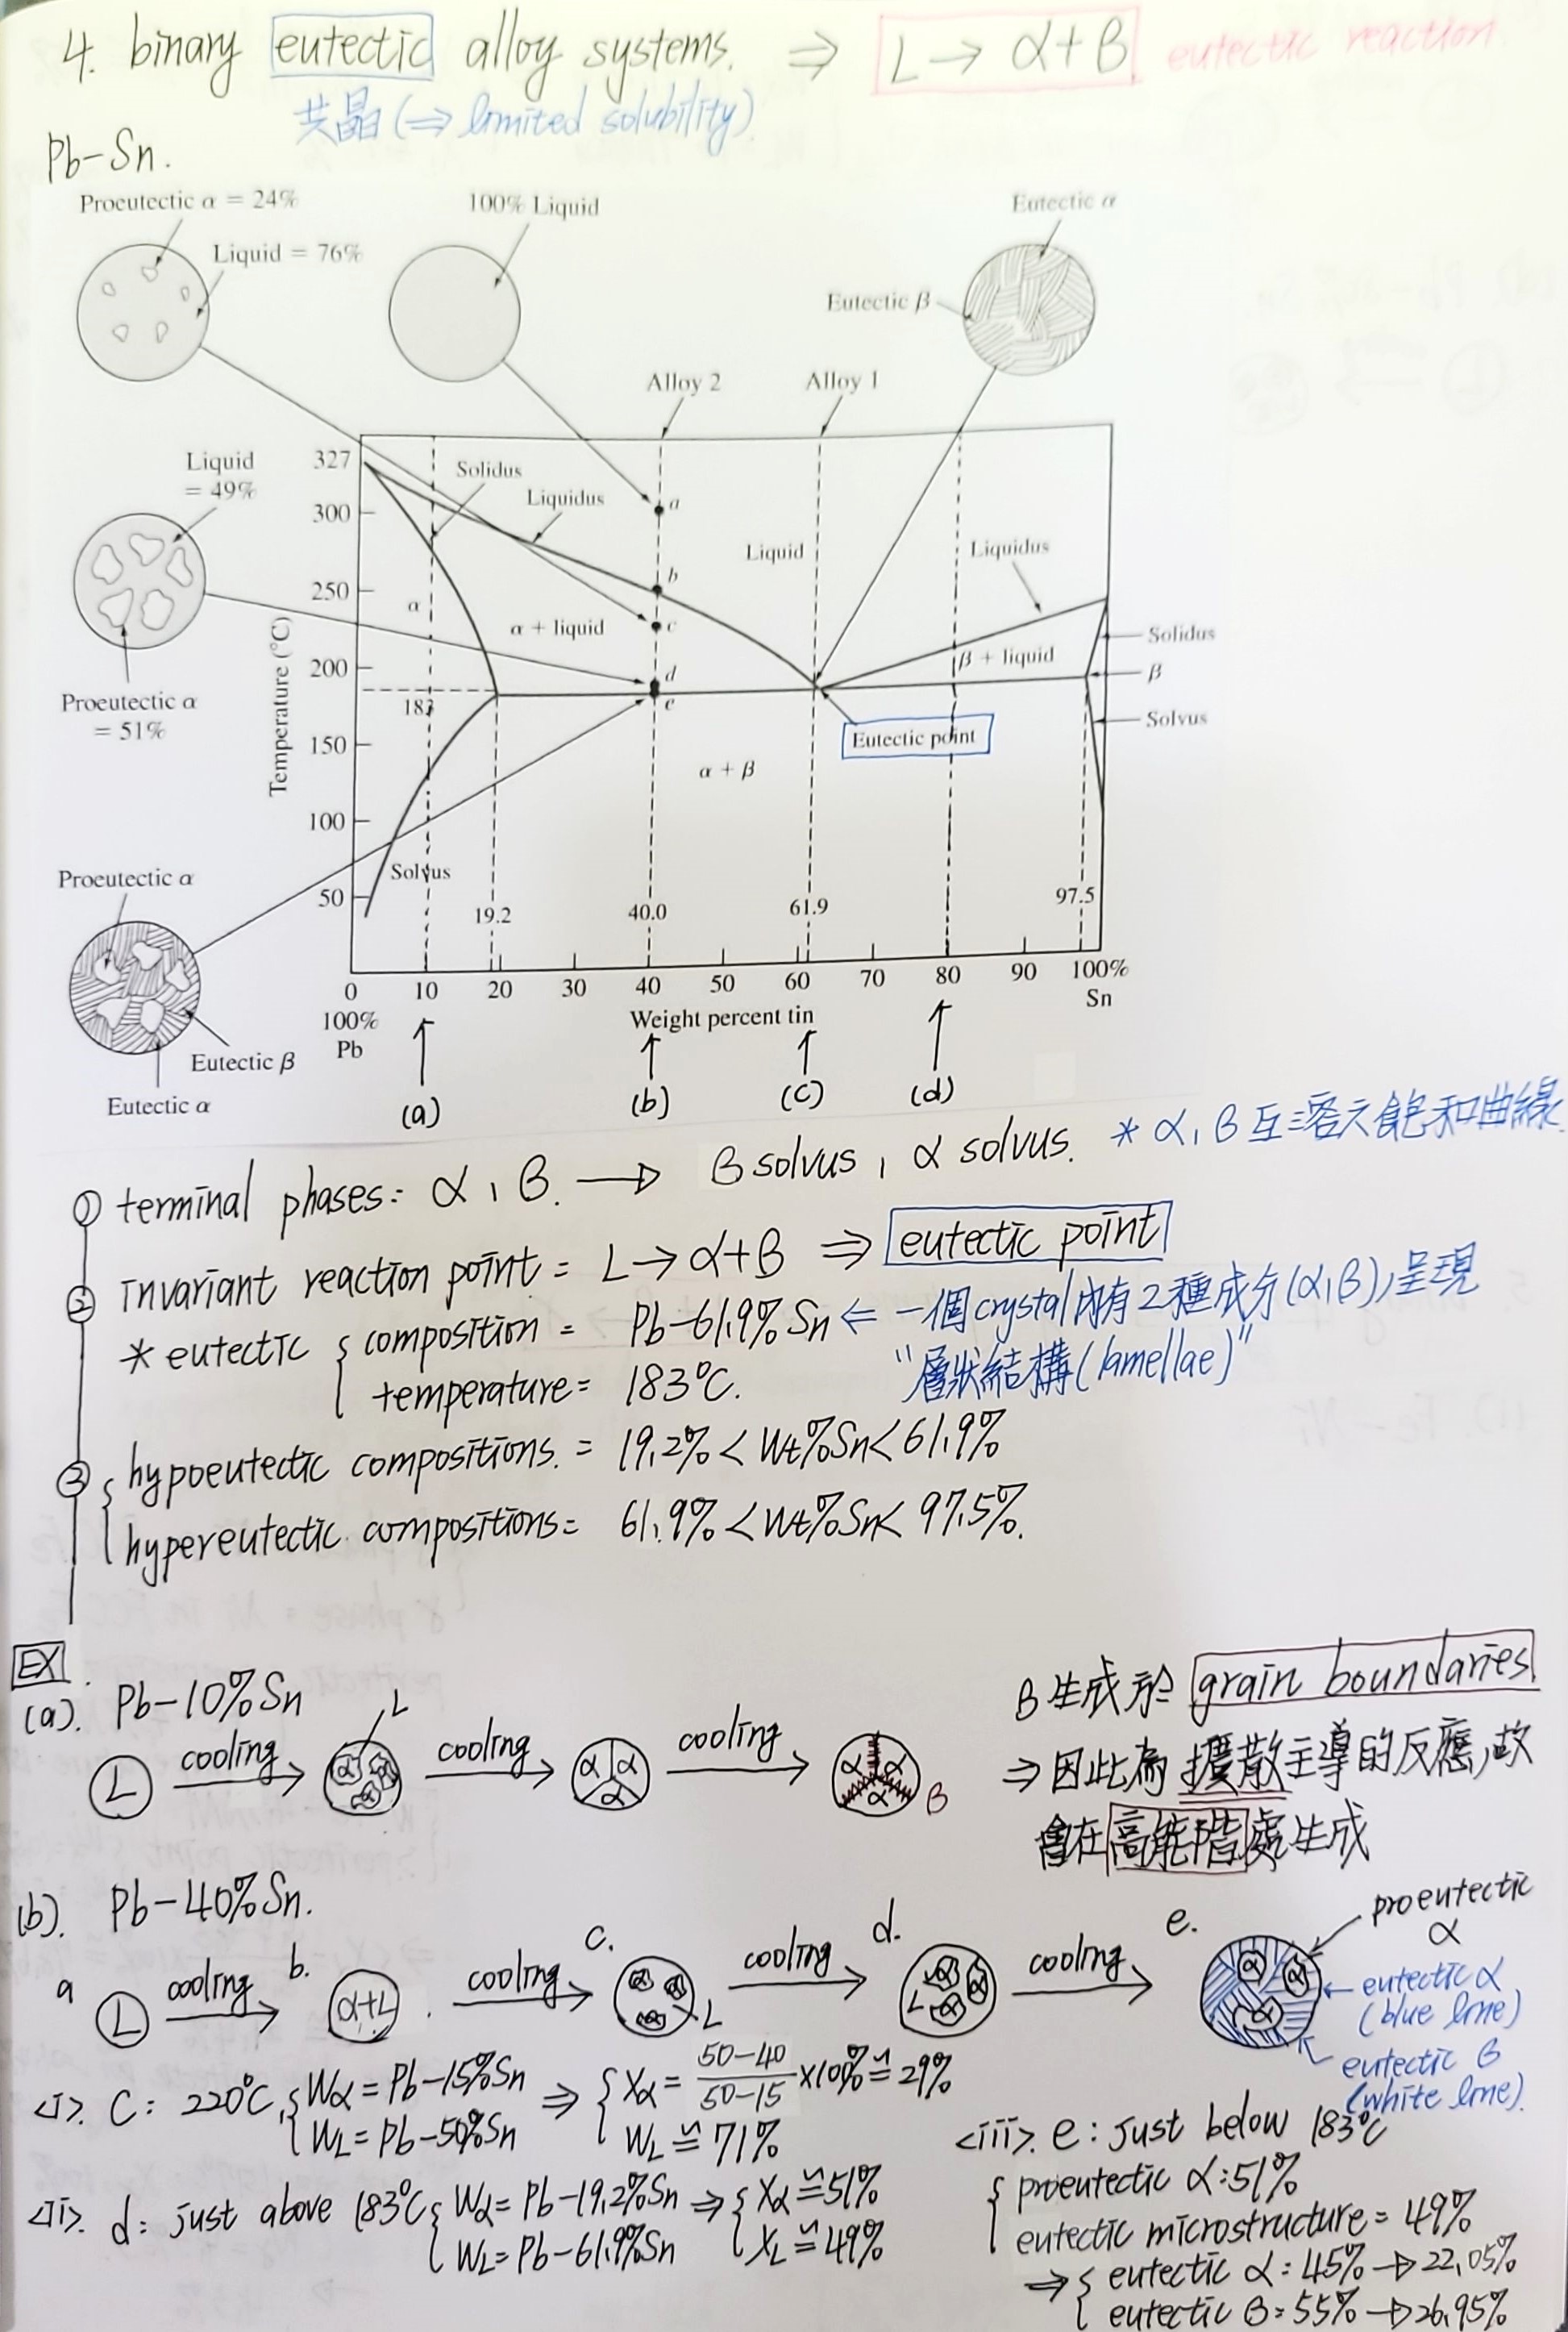 4. binary eutectic alloy systems. ⇒ L → α+β eutectic reaction
共晶 (⇒ limited solubility)
Pb-Sn.
Proeutectic α = 24%
Liquid = 76%
100% Liquid
Eutectic α
Eutectic β
Alloy 2
Alloy 1
Liquid
= 49%
Proeutectic α
= 51%
Proeutectic α
Eutectic β
Eutectic α
Temperature (°C)
327
300
250
200
183
150
100
50
Solidus
Liquidus
a
b
c
d
e
α
α + liquid
Liquid
Liquidus
β + liquid
Solidus
β
Solvus
Eutectic point
α + β
Solvus
19.2
40.0
61.9
97.5
0 10 20 30 40 50 60 70 80 90 100%
100%
Pb
Weight percent tin
Sn
(a) (b) (c) (d)
① terminal phases: α, β. → β solvus, α solvus. * α, β 互溶之飽和曲線
② invariant reaction point = L → α+β ⇒ eutectic point
* eutectic { composition = Pb-61.9% Sn ⇐ 一個crystal內有2種成分(α,β),呈現
temperature = 183°C. "層狀結構(lamellae)"
③ { hypoeutectic compositions. = 19.2% < Wt%Sn < 61.9%
hypereutectic compositions = 61.9% < Wt%Sn < 97.5%.
EX.
(a). Pb-10%Sn
L cooling → α α α L cooling → α α α cooling → α α α β
β生成於 grain boundaries
⇒ 因此為擴散主導的反應,故
會在高能階處生成
(b). Pb-40%Sn.
a L cooling → b. α+L cooling → c. α α α L cooling → d. α α α L cooling → e. α α α
proeutectic
α
eutectic α
(blue line)
eutectic β
(white line).
<i>. C: 220°C, { Wα = Pb-15%Sn ⇒ { Xα = 50-40 / 50-15 ×100% ≌ 29%
WL = Pb-50%Sn WL ≌ 71%
<ii>. d: just above 183°C { Wα = Pb-19.2%Sn ⇒ { Xα ≌ 51%
WL = Pb-61.9%Sn XL ≌ 49%
<iii>. e: just below 183°C
{ proeutectic α: 51%
eutectic microstructure = 49%
⇒ { eutectic α: 45% → 22.05%
eutectic β: 55% → 26.95%